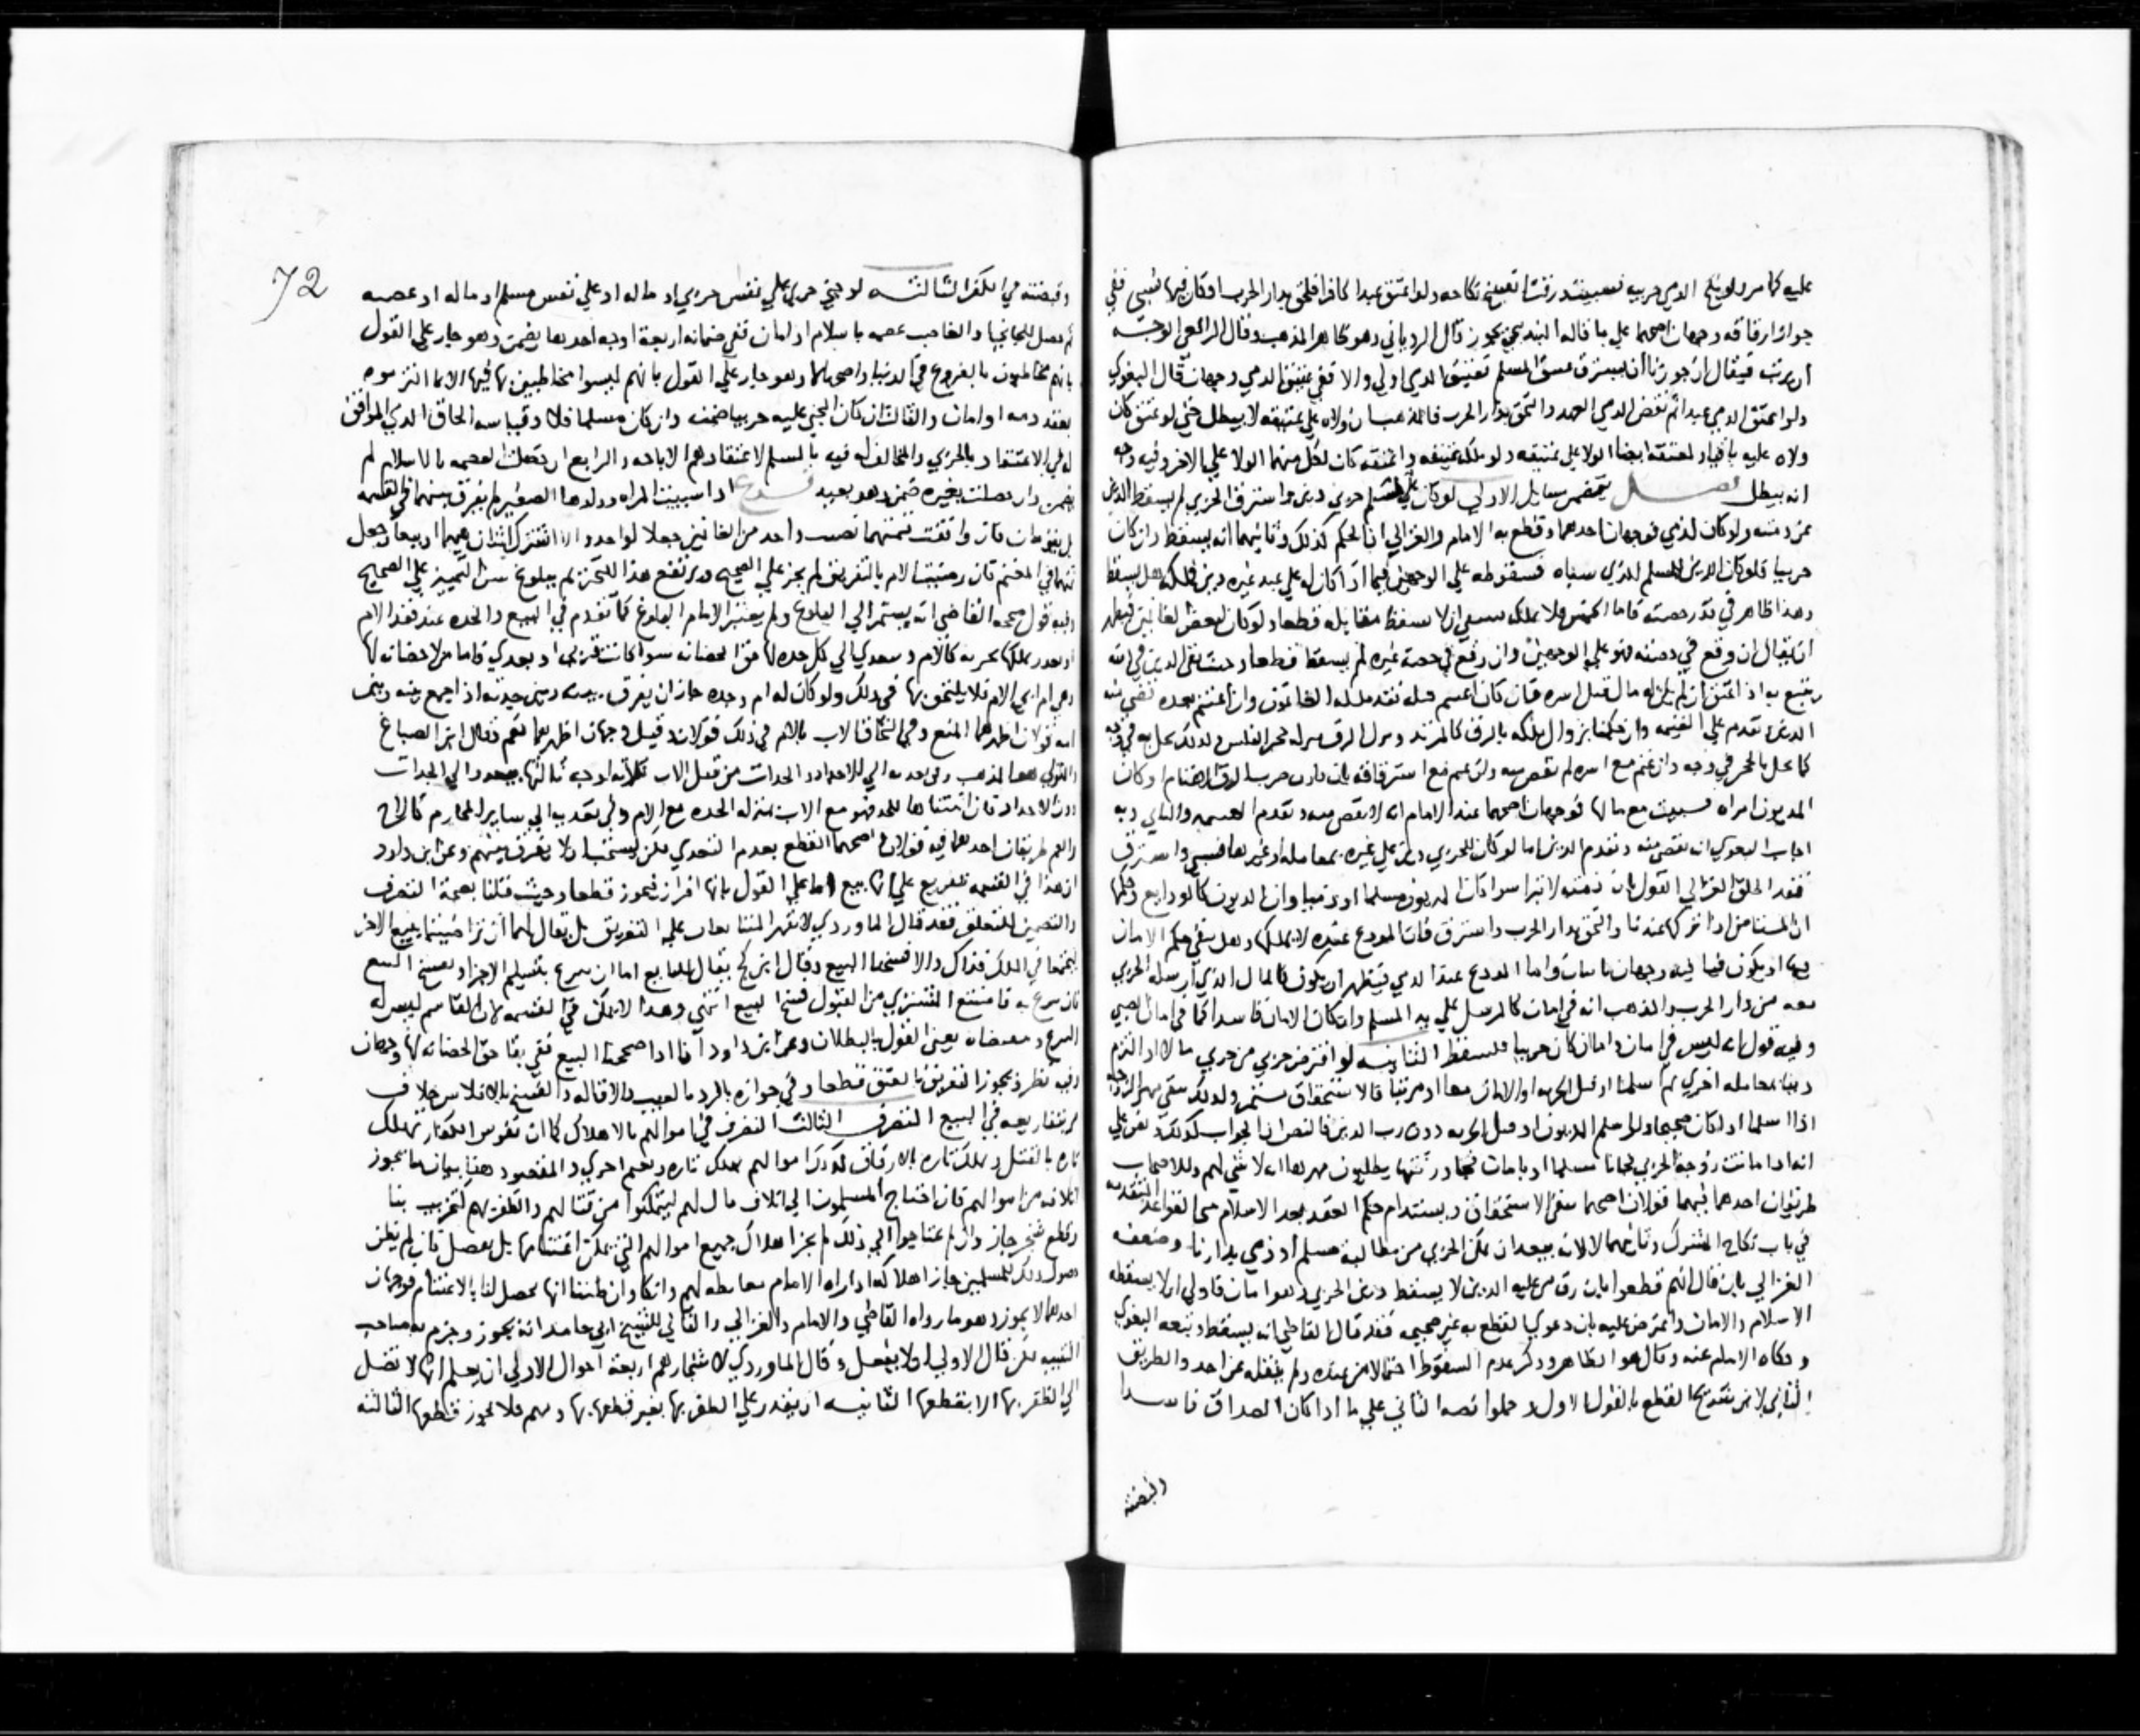 عليه كما مر ولو نكح الذمي حربيه فسبيت ورقت انقطع نكاحه ولو اعتق عبدا كافرا فلحق بدار الحرب او كان فيها فسبي ففي
جواز ارقاقه وجهان اصحهما علي ما قاله البندنيجي يجوز قال الروياني وهو ظاهر المذهب وقال الرافعي الوجه
ان يرتب فيقال ان جوزنا ان يسترق معتق المسلم فعتيق الذمي اولي والا ففي عتيق الذمي وجهان قال البغوي
ولو اعتق الذمي عبدا ثم نقض الذمي العهد والتحق بدار الحرب فالمذهب ان ولاه علي عتيقه لا يبطل حتي لو عتق كان
ولاه عليه باقيا ولمعتقه ايضا الولا علي عتيقه ولو ملكه عتيقه واعتقه كان لكل منهما الولا علي الاخر وفيه وجه
انه يبطل فصل يتضمن مسايل الاولي لو كان لمسلم علي حربي دين واسترق الحربي لم يسقط الدين
عن ذمته ولو كان لذمي فوجهان احدهما وقطع به الامام والغزالي ان الحكم كذلك وثانيهما انه يسقط وان كان
حربيا فلو كان الدين للمسلم الذي سباه فسقوطه علي الوجهين فيما اذا كان له علي عبد غيره دين فملكه هل يسقط
وهذا ظاهر في قدر حصته فاما الخمس فلا يملك فينبغي ان لا يسقط مقابله قطعا ولو كان لبعض الغانمين فيظهر
ان يقال ان وقع في حصته فهو علي الوجهين وان وقع في حصة غيره لم يسقط قطعا وحيث بقي الدين في ذمته
يتبع به اذا اعتق ان لم يكن له مال قبل اسره فان كان اغتنم قبله فقد ملكه الغانمون وان اغتنم بعده قضي منه
الدين وتقدم علي الغنيمه وان حكمنا بزوال ملكه بالرق كالمرتد ونزل الرق منزله حجر الفلس ولذلك يحل به في وجه
كما يحل بالحجر في وجه وان غنم مع اسره لم يقض منه ولو غنم مع استرقاقه
المديون امراه فسبيت مع مالها فوجهان اصحهما عند الامام انه لا يقضي منه وتقدم الغنيمه والثاني وبه
اجاب البغوي انه يقضي منه وتقدم الدين اما لو كان للحربي دين علي غيره بمعامله او غيرها فسبي واسترق
فقد اطلق الغزالي القول بان ذمته لا تبرا سوا كان المديون مسلما او ذميا وان الديون كالودايع وحكمها
ان المستامن اذا تركها عندنا والتحق بدار الحرب واسترق فان المودع عنده لا يملكها وهل يبقي حكم الامان
فيها او يكون فيئا فيه وجهان ياتيان واما المودع عند الذمي فيظهر ان يكون كالمال الذي ارسله الحربي
معه من دار الحرب والمذهب انه في امان كالمرسل علي يد المسلم وان كان الامان فاسدا كما في امان الصبي
وفيه قول انه ليس في امان واما ان كان حربيا فيسقط الثانيه لو اقترض حربي من حربي مالا او التزم
دينا بمعامله اخري ثم اسلما او قبل الجزيه او الامان معا او مرتبا فالاستحقاق مستمر ولذلك يبقي مهر الزوجه
اذا اسلما اذا كان صحيحا ولو اسلم المديون او قبل الجزيه دون رب الدين فالنص ان الجواب كذلك ونص علي
انه اذا ماتت زوجة الحربي فجانا مسلما او بامان فجا ورثتها يطلبون مهرها انه لا شي لهم وللاصحاب
طريقان احدهما فيهما قولان اصحهما يبقي الاستحقاق ويستدام حكم العقد بعد الاسلام علي القواعد المتقدمه
في باب نكاح المشرك وثانيهما لا لانه يبعد ان يمكن الحربي من مطالبة مسلم او ذمي بدارنا وضعفه
الغزالي بان قال انهم قطعوا بان رق من عليه الدين لا يسقط دين الحربي وهو امان فاولي ان لا يسقطه
الاسلام والامان واعترض عليه بان دعوي القطع به غير صحيحه فقد قال القاضي انه يسقط وتبعه البغوي
وحكاه الامام عنه وقال هو الظاهر وذكر عدم السقوط احتمالا من عنده ولم ينقله عن احد والطريق
الثاني لابن سريج القطع بالقول الاول وحملوا نصه الثاني علي ما اذا كان الصداق فاسدا
والبضعه
72
وقبضته في الكفر الثالثه لو جني حربي علي نفس حربي او ماله او علي نفس مسلم او ماله او عصبه
ثم حصل للجاني والغاصب عصمه باسلام او امان ففي ضمانه اربعة اوجه احدها يضمن وهو جار علي القول
بانهم مخاطبون بالفروع في الدنيا واصحها لا وهو جار علي القول بانهم ليسوا مخاطبين بها فيها الا بما التزموه
بعقد ذمه او امان والثالث ان كان المجني عليه حربيا ضمنه وان كان مسلما فلا وقياسه الحاق الذمي الموافق
له في الاعتقاد بالحربي والمخالف له فيه بالمسلم لاعتقادهم الاباحه والرابع ان حصلت العصمه بالاسلام لم
يضمن وان حصلت بغيره ضمن وهو بعيد فروع اذا سبيت المراه وولدها الصغير لم يفرق بينهما في القسمه
بل يقومان فان وافقت قيمتهما نصيب واحد من الغانمين جعلا لواحد والا اشترك اثنان فيهما او بيعا وجعل
ثمنهما في المغنم فان رضيت الام بالتفريق لم يجز علي الصحيح ويرتفع هذا التحريم ببلوغ سن التمييز علي الصحيح
وفيه قول صححه القاضي انه يستمر الي البلوغ ولم يعتبر الامام البلوغ كما تقدم في البيع والجده عند فقد الام
او بعد ملكها بحريه كالام ويتعدي الي كل جده لها حق الحضانه سوا كانت قربي او بعدي فاما من لا حضانه لها
وهي ام ابي الام فلا يلتحق بها في ذلك ولو كان له ام وجده جاز ان يفرق بينه وبين جدته اذا اجمع بينه وبين
امه قولان اظهرهما المنع وفي التحاق الاب بالام في ذلك قولان وقيل وجهان اظهرهما نعم وقال ابن الصباغ
والتولي هما المذهب وفي تعديه الي الاجداد والجدات من قبل الاب ثلاثه اوجه ثالثها يتعدي الي الجدات
دون الاجداد فان اثبتناها للجد فهو مع الاب بمنزله الجده مع الام وفي تعديه الي ساير المحارم كالاخ
والعم طريقان احدهما فيه قولان اصحهما القطع بعدم التعدي لكن يستحب ان لا يفرق بينهم وعن ابن داود
ان هذا في القسمه تفريع علي انها بيع اما علي القول بانها افراز فيجوز قطعا وحيث قلنا بصحة التصرف
والتضمين المتعلق فقد قال الماوردي لا يقر المتبايعان علي التفريق بل يقال لهما ان تراضيتما ببيع الاخر
ليجتمعا في الملك فذاك والا فسخنا البيع وقال ابن كج يقال للبايع اما ان تتبرع بتسليم الاخر او نفسخ البيع
فان تبرع به فامتنع المشتري من القبول فسخ البيع انتهي وهذا لا يمكن في القسمه لان القاسم ليس له
التبرع ومقتضاه يعني القول بالبطلان وعن ابن داود انا اذا صححنا البيع ففي بقا حق الحضانه لها وجهان
وفيه نظر ويجوز التفريق بالعتق قطعا وفي جوازه بالرد بالعيب والاقاله والفسخ بالافلاس خلاف
مر بتفاريعه في البيع التصرف الثالث التصرف في اموالهم بالاهلاك كما ان نفوس الكفار تهلك
تاره بالقتل وتملك تاره بالارقاق كذلك اموالهم تهلك تاره وتغنم اخري والمقصود هنا بيان ما يجوز
اتلافه من اموالهم فان احتاج المسلمون الي اتلاف مال لهم ليتمكنوا من قتالهم والظفر بهم كتخريب بنا
وقطع شجر جاز وان لم يحتاجوا الي ذلك لم يجز اهلاك جميع اموالهم التي يمكن اغتنامها بل يفصل فان لم يظن
حصول ذلك للمسلمين جاز اهلاكه اذا راه الامام مغايظه لهم وانكا وان ظننا انها تحصل لنا بالاغتنام فوجهان
احدهما لا يجوز وهو ما رواه القاضي والامام والغزالي والثاني للشيخ ابي حامد انه يجوز وجزم به صاحب
التنبيه لكن قال الاولي ان لا يفعل وقال الماوردي لاشجارهم اربعة احوال الاولي ان يعلم انها لا تصل
الي الظفر بها الا بقطعها الثانيه ان يقدر علي الظفر بها بغير قطعها وبهم فلا يجوز قطعها الثالثه